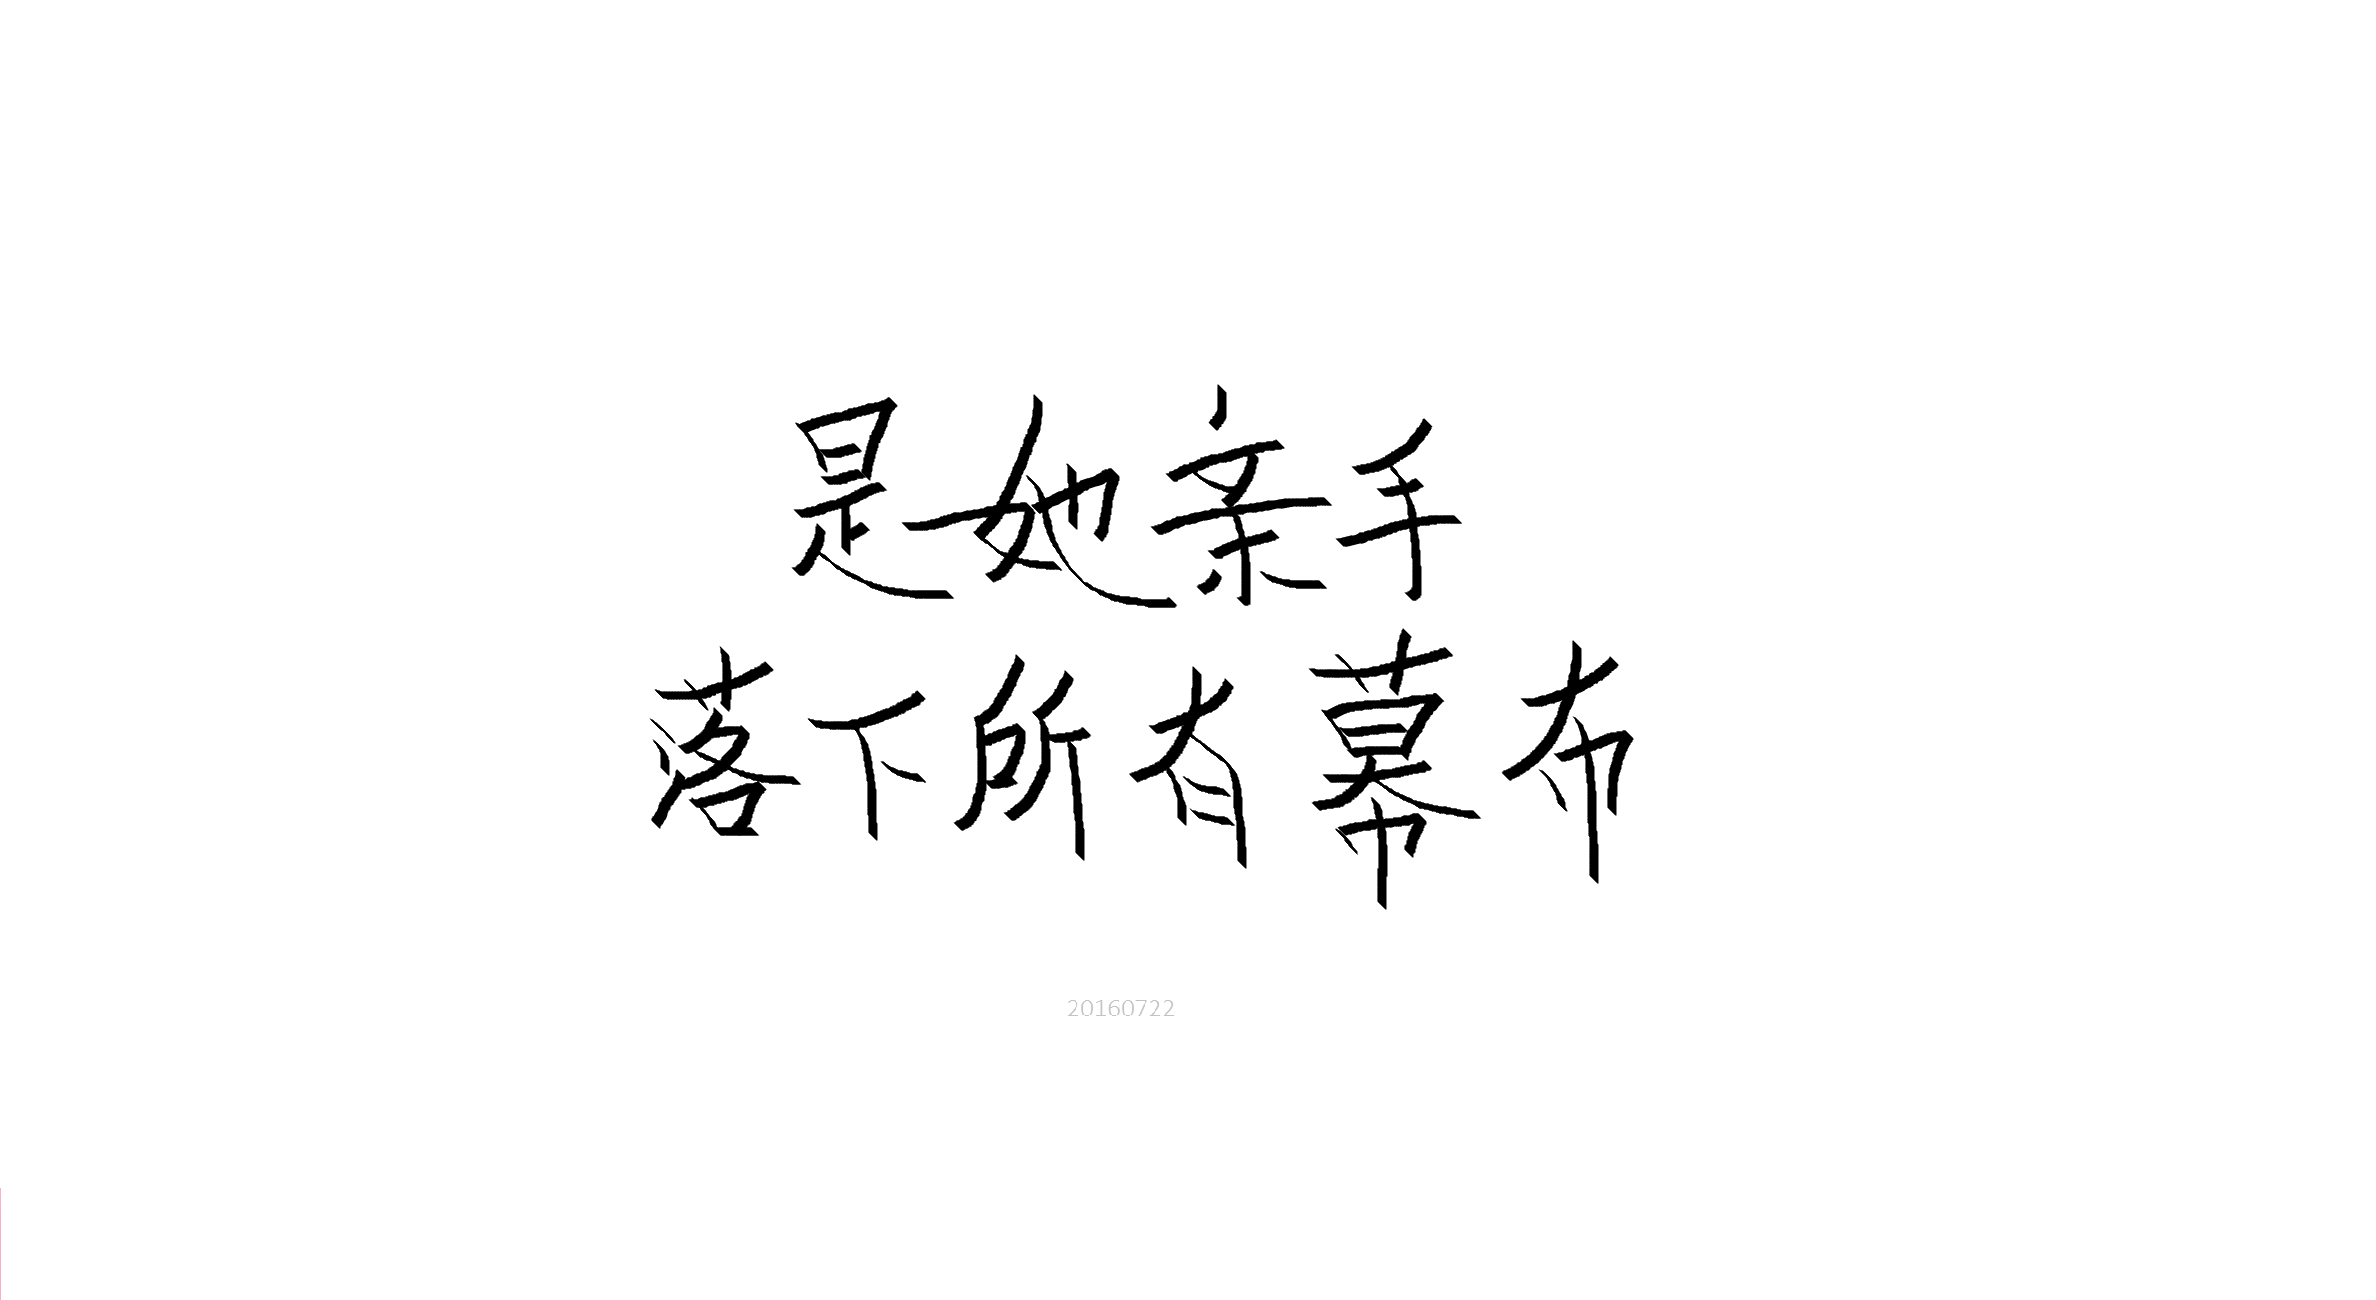 是她亲手
落下所有幕布
20160722